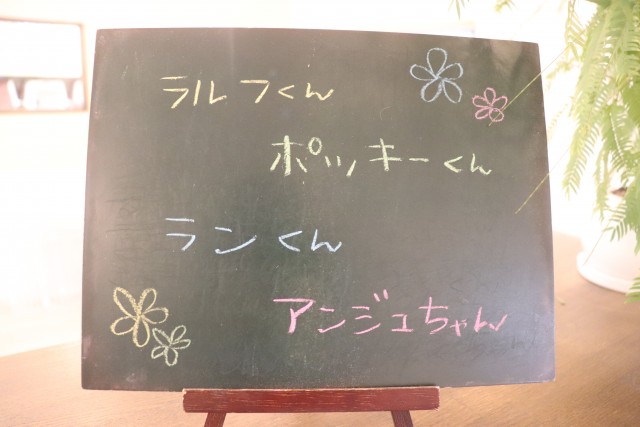 ラルフくん
ポッキーくん
ランくん
アンジュちゃん